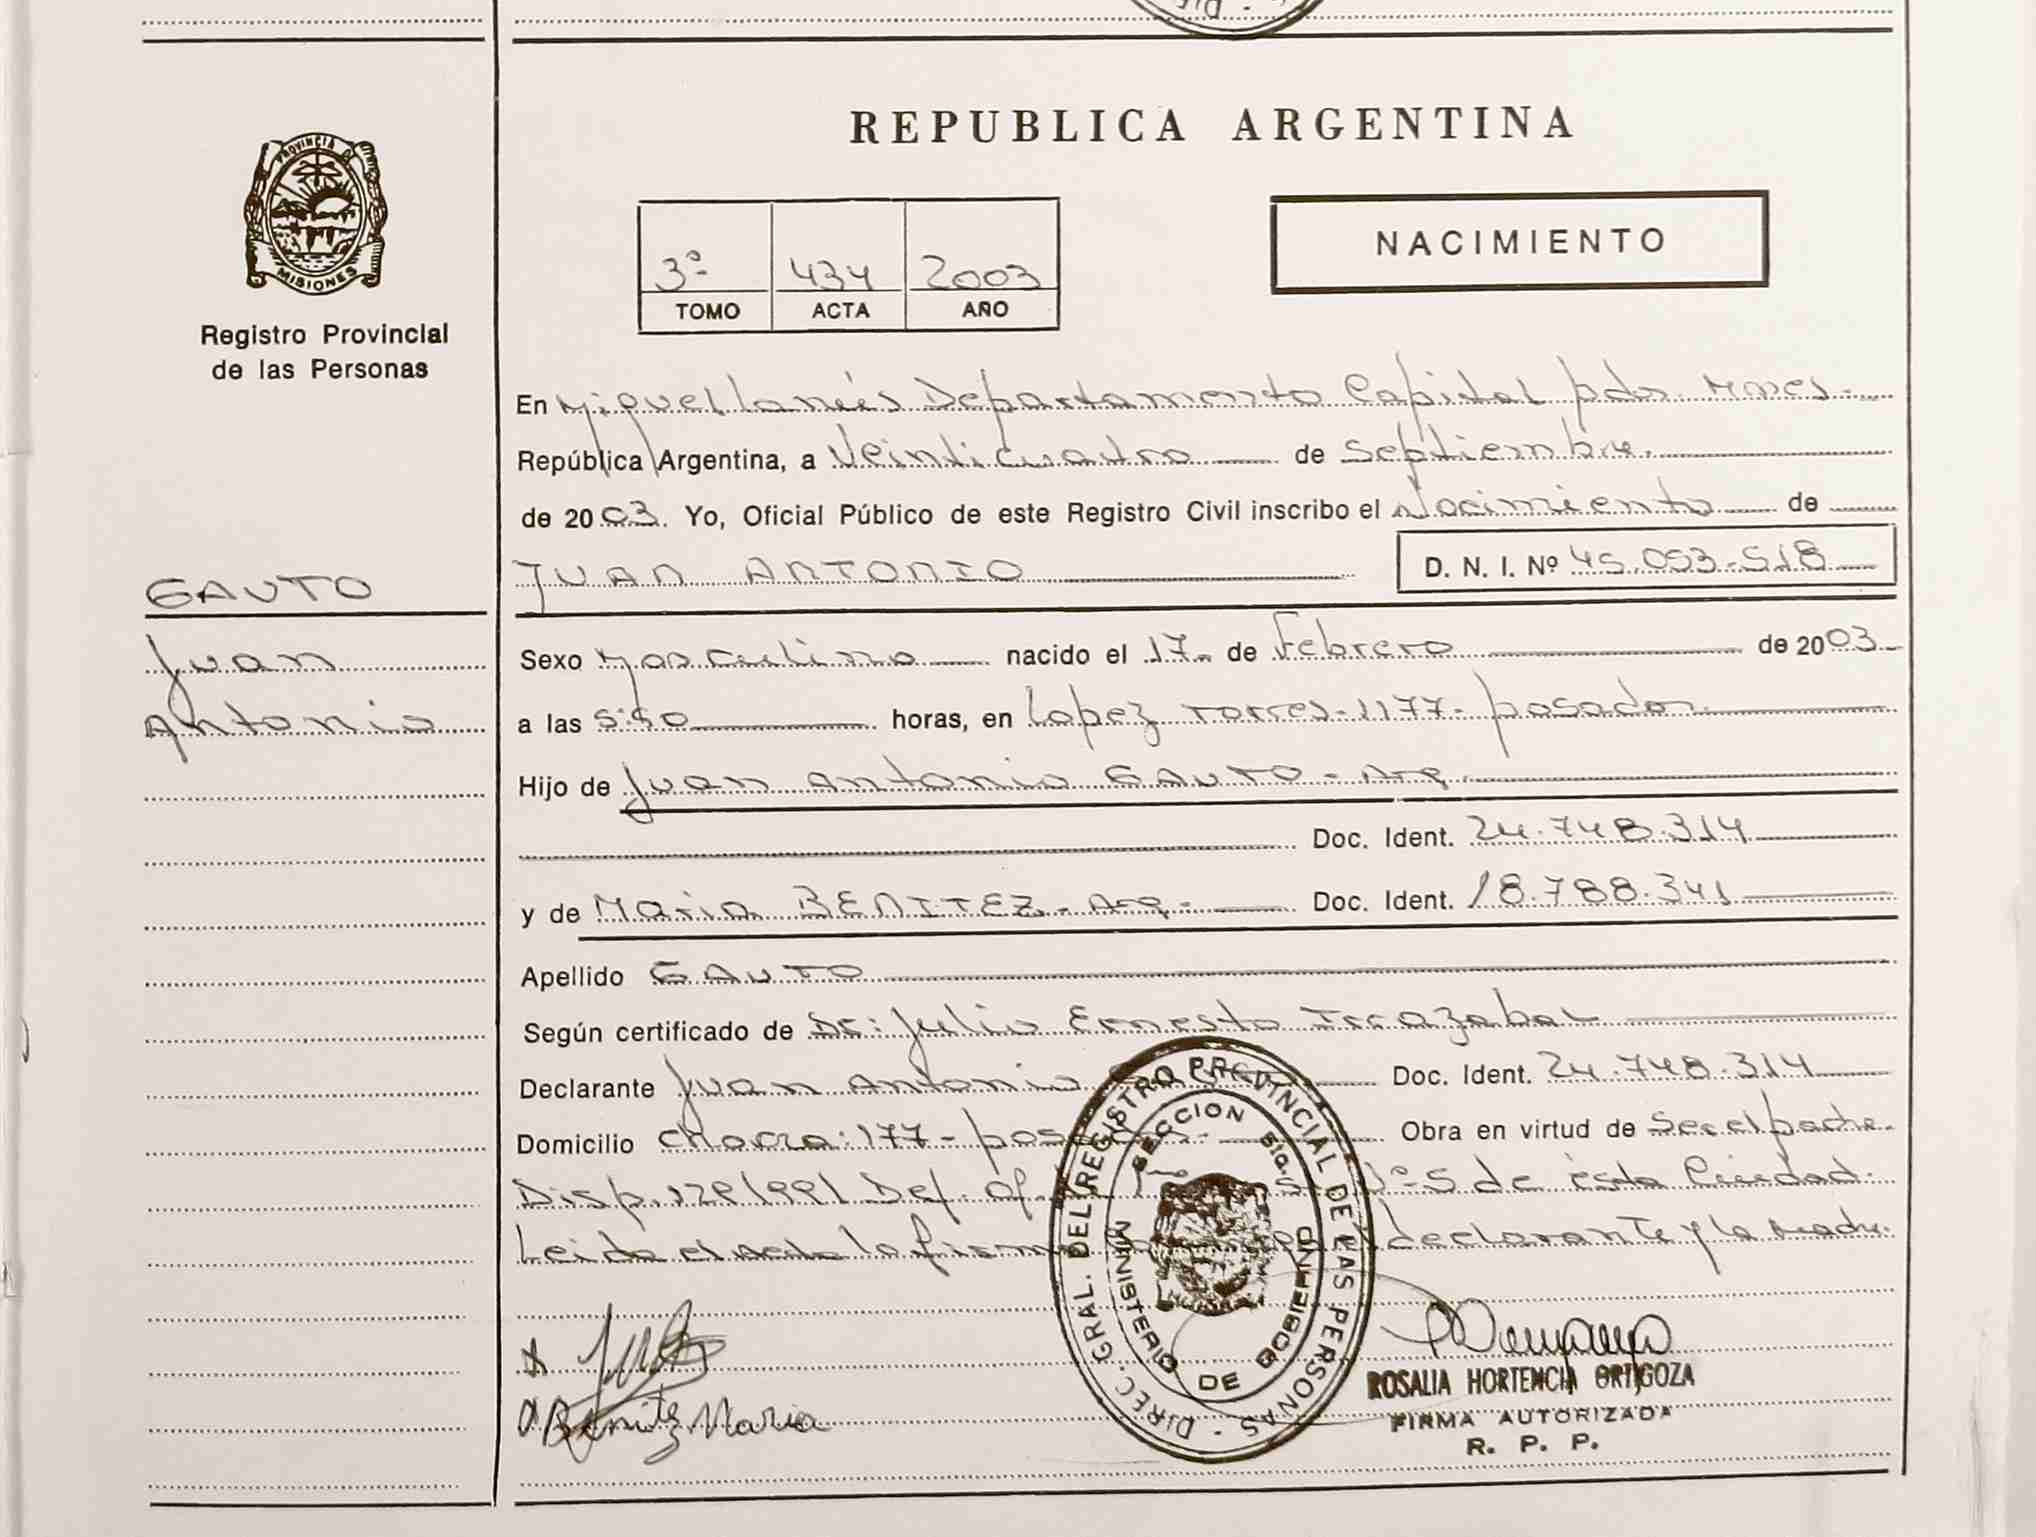 REPUBLICA ARGENTINA
PROVINCIA DE
MISIONES
Registro Provincial
de las Personas
3º 434 2003
TOMO ACTA AÑO
NACIMIENTO
En Miguel Lanús Departamento Capital pcia. Mnes.
República Argentina, a Veinticuatro de Septiembre
de 2003. Yo, Oficial Público de este Registro Civil inscribo el Nacimiento de
GAUTO
Juan
Antonio
JUAN ANTONIO D. N. I. Nº 45.053.518
Sexo Masculino nacido el 17 de Febrero de 2003
a las 5:50 horas, en Lopez Torres-1177- posadas.
Hijo de Juan Antonio GAUTO - Arg.
Doc. Ident. 24.748.314
y de Maria BENITEZ - Arg. Doc. Ident. 18.788.341
Apellido GAUTO
Según certificado de Dr: Julio Ernesto Irrazabal
Declarante Juan Antonio Doc. Ident. 24.748.314
Domicilio chacra: 177 - posadas Obra en virtud de Ser el padre.
Disp. 129/991 Def. Of. Nº 5 de esta Ciudad.
Leida el acta la firman declarante y la madre.
Benitez Maria
DIREC. GRAL. DEL REGISTRO PROVINCIAL DE LAS PERSONAS
SECCION 5ta.
MINISTERIO DE GOBIERNO
ROSALIA HORTENCIA ORTIGOZA
FIRMA AUTORIZADA
R. P. P.